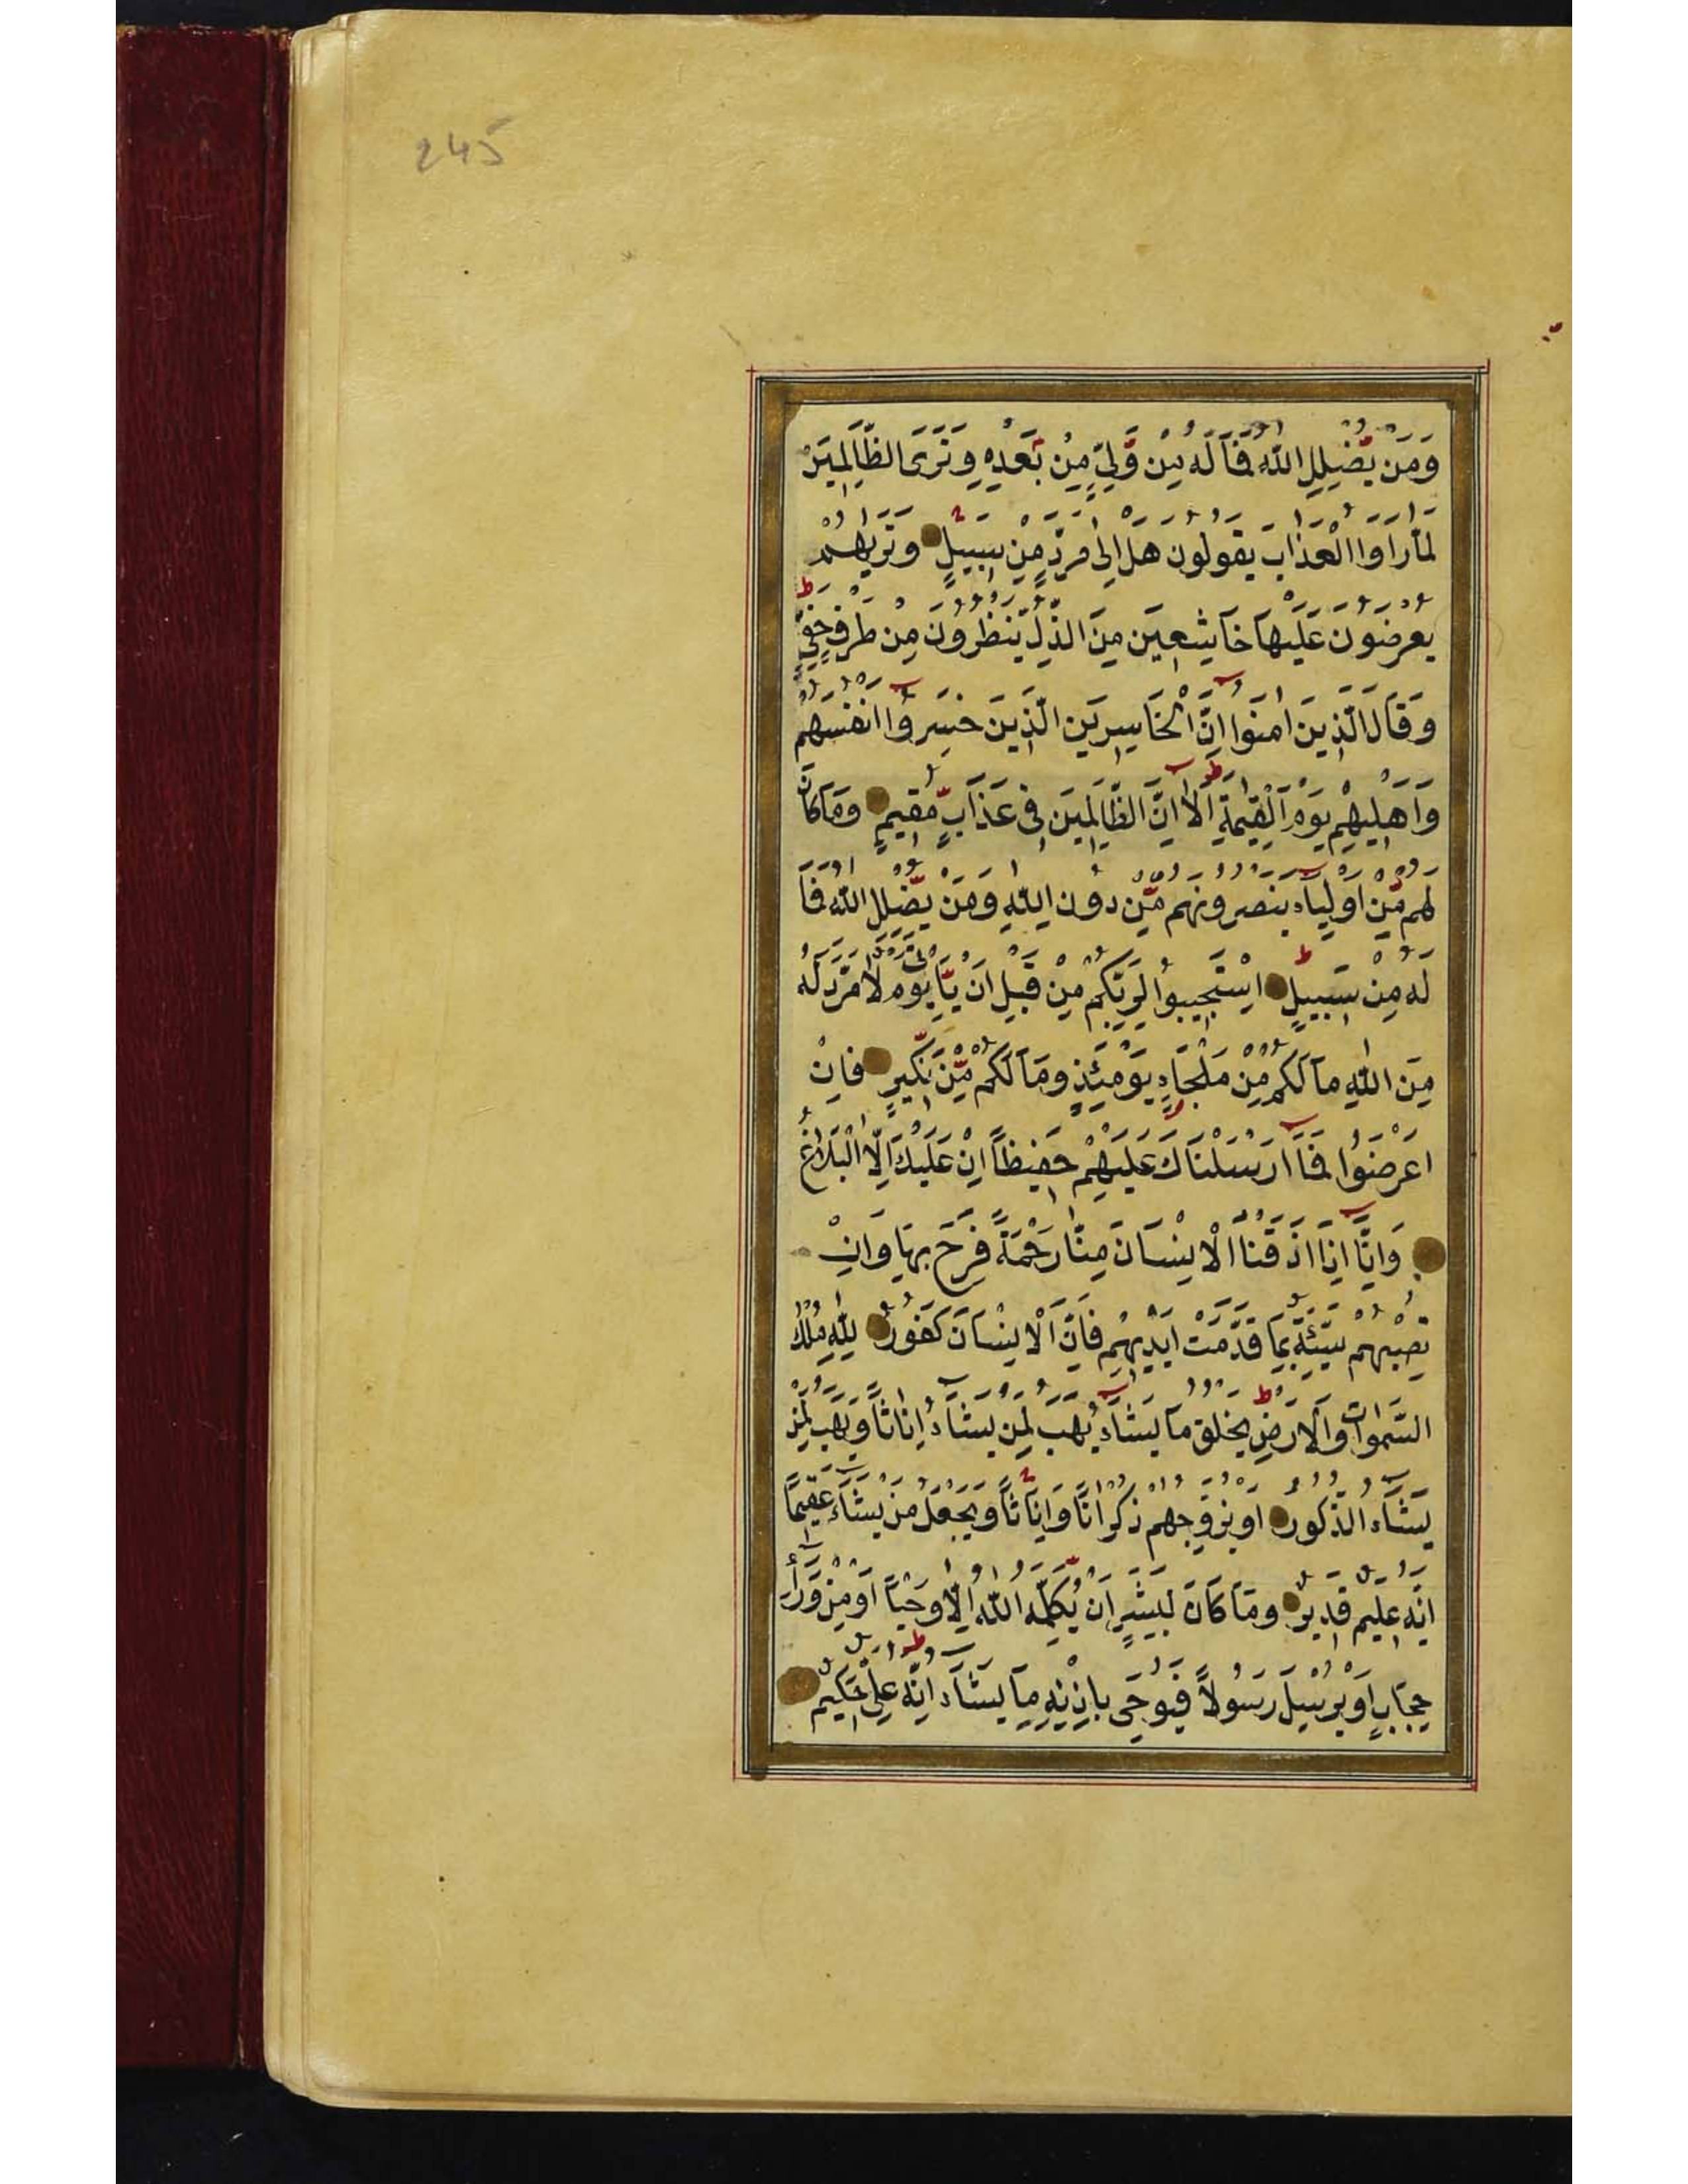 245
وَمَنْ يُضْلِلِ اللّٰهُ فَمَا لَهُ مِنْ وَلِيٍّ مِنْ بَعْدِهِ وَتَرَى الظَّالِمِينَ
لَمَّا رَاَوُا الْعَذَابَ يَقُولُونَ هَلْ اِلٰى مَرَدٍّ مِنْ سَبِيلٍ وَتَرٰيهُمْ
يُعْرَضُونَ عَلَيْهَا خَاشِعِينَ مِنَ الذُّلِّ يَنْظُرُونَ مِنْ طَرْفٍ خَفِيٍّ
وَقَالَ الَّذِينَ اٰمَنُوا اِنَّ الْخَاسِرِينَ الَّذِينَ خَسِرُوا اَنْفُسَهُمْ
وَاَهْلِيهِمْ يَوْمَ الْقِيٰمَةِ اَلَا اِنَّ الظَّالِمِينَ فِي عَذَابٍ مُقِيمٍ وَمَا كَانَ
لَهُمْ مِنْ اَوْلِيَاءَ يَنْصُرُونَهُمْ مِنْ دُونِ اللّٰهِ وَمَنْ يُضْلِلِ اللّٰهُ فَمَا
لَهُ مِنْ سَبِيلٍ اِسْتَجِيبُوا لِرَبِّكُمْ مِنْ قَبْلِ اَنْ يَأْتِيَ يَوْمٌ لَا مَرَدَّ لَهُ
مِنَ اللّٰهِ مَا لَكُمْ مِنْ مَلْجَاٍ يَوْمَئِذٍ وَمَا لَكُمْ مِنْ نَكِيرٍ فَاِنْ
اَعْرَضُوا فَمَا اَرْسَلْنَاكَ عَلَيْهِمْ حَفِيظًا اِنْ عَلَيْكَ اِلَّا الْبَلَاغُ
وَاِنَّا اِذَا اَذَقْنَا الْاِنْسَانَ مِنَّا رَحْمَةً فَرِحَ بِهَا وَاِنْ
تُصِبْهُمْ سَيِّئَةٌ بِمَا قَدَّمَتْ اَيْدِيهِمْ فَاِنَّ الْاِنْسَانَ كَفُورٌ لِلّٰهِ مُلْكُ
السَّمٰوَاتِ وَالْاَرْضِ يَخْلُقُ مَا يَشَاءُ يَهَبُ لِمَنْ يَشَاءُ اِنَاثًا وَيَهَبُ لِمَنْ
يَشَاءُ الذُّكُورَ اَوْ يُزَوِّجُهُمْ ذُكْرَانًا وَاِنَاثًا وَيَجْعَلُ مَنْ يَشَاءُ عَقِيمًا
اِنَّهُ عَلِيمٌ قَدِيرٌ وَمَا كَانَ لِبَشَرٍ اَنْ يُكَلِّمَهُ اللّٰهُ اِلَّا وَحْيًا اَوْ مِنْ وَرَاءِ
حِجَابٍ اَوْ يُرْسِلَ رَسُولًا فَيُوحِيَ بِاِذْنِهِ مَا يَشَاءُ اِنَّهُ عَلِيٌّ حَكِيمٌ